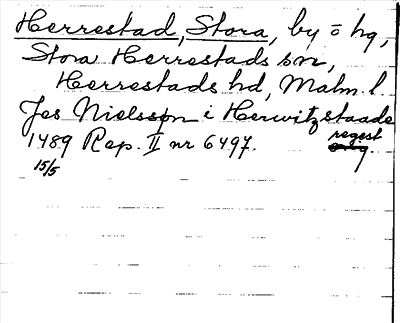 Herrestad, Stora, by o hg,
Stora Herrestads sn,
Herrestads hd, Malm. l.
Jes Nielssøn i Herwitzstaade
1489 Rep. II nr 6497. regest
15/5